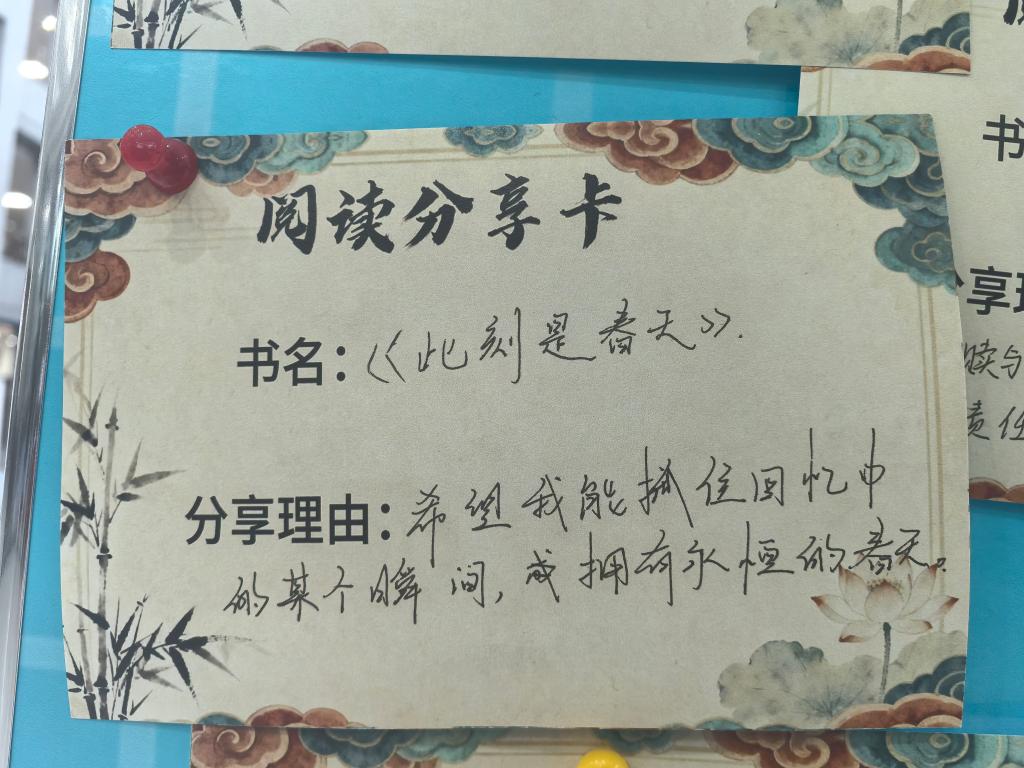 阅读分享卡
书名：《此刻是春天》.
分享理由：希望我能抓住回忆中
的某个瞬间，或拥有永恒的春天。
书
分享理
赎与
责任